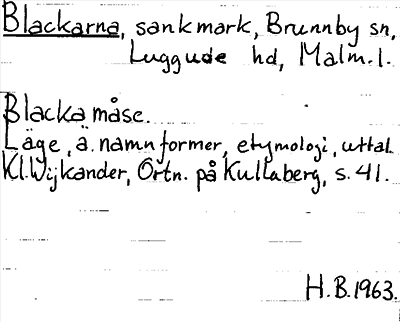 Blackarna, sankmark, Brunnby sn,
Luggude hd, Malm. l.
Blacka måse.
Läge, ä. namnformer, etymologi, uttal.
Kl. Wijkander, Ortn. på Kullaberg, s. 41.
H.B. 1963.